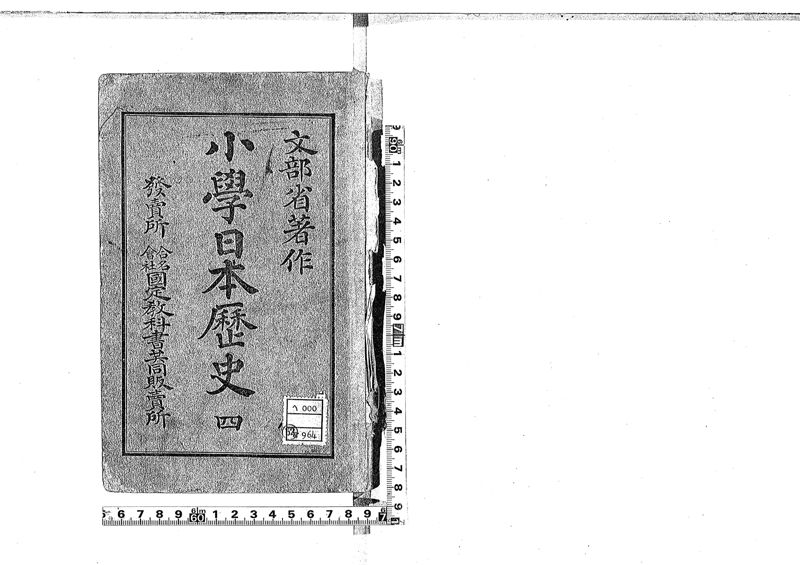 文部省著作
小學日本歷史 四
發賣所 合名會社國定教科書共同販賣所
ヘ 000
964
5 6 7 8 9 60 1 2 3 4 5 6 7 8 9
1 2 3 4 5 6 7 8 9 1 2 3 4 5 6 7 8 9